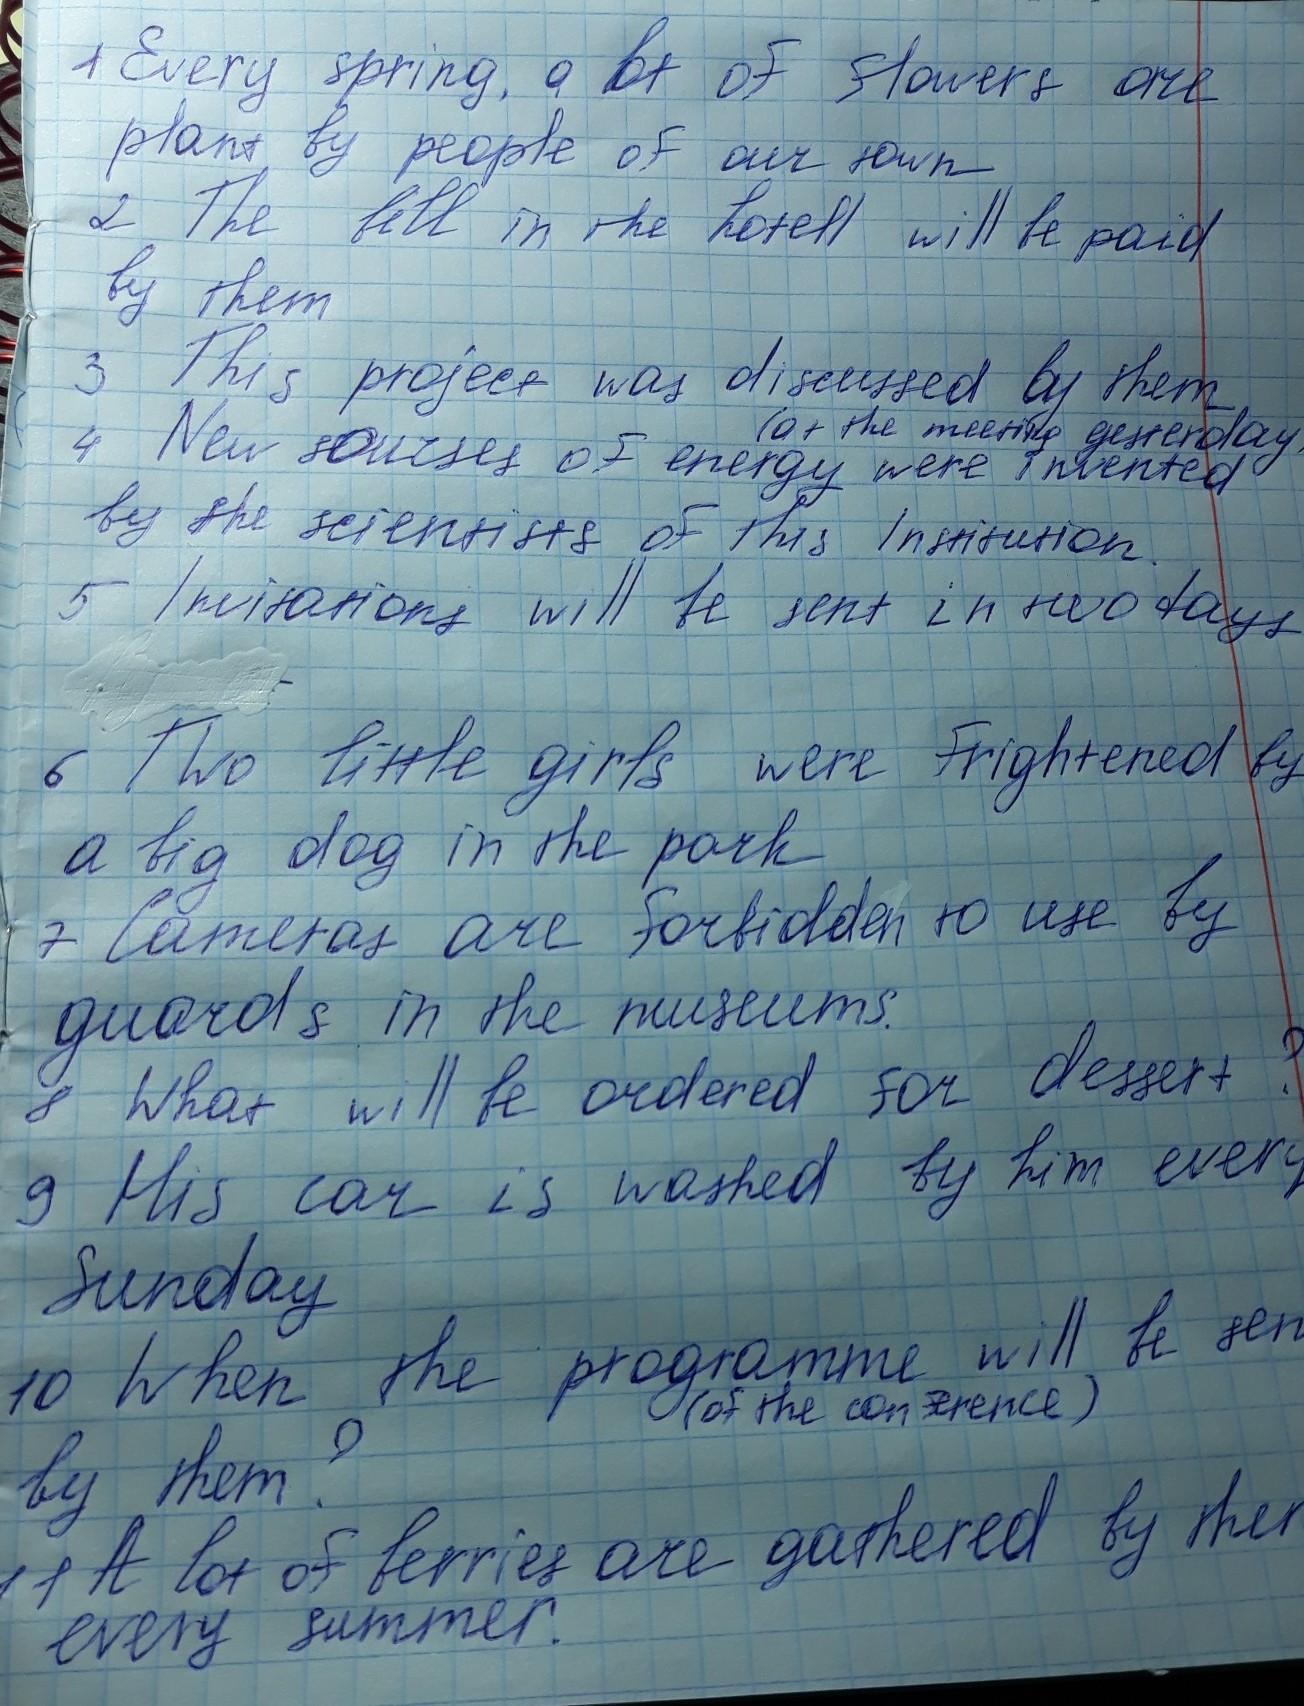 1 Every spring, a lot of flowers are
plant by people of our town
2 The bill in the hotell will be paid
by them
3 This project was discussed by them
(at the meeting yesterday)
4 New sourses of energy were invented
by the scientists of this Institution.
5 Invitations will be sent in two days
6 Two little girls were frightened by
a big dog in the park
7 Cameras are forbidden to use by
guards in the museums.
8 What will be ordered for dessert?
9 His car is washed by him every
Sunday
10 When the programme will be sen
(of the conference)
by them?
11 A lot of berries are gathered by ther
every summer.